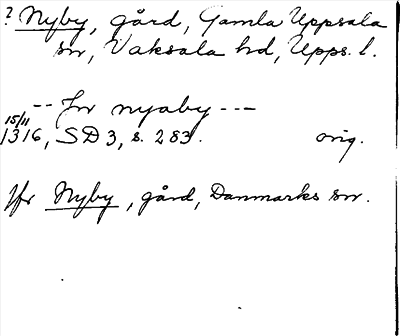 ? Nyby, gård, Gamla Uppsala
sn, Vaksala hd, Upps. l.
-- Jn nyaby ---
15/11
1316, SD 3, s. 283. orig.
Jfr Nyby, gård, Danmarks sn.